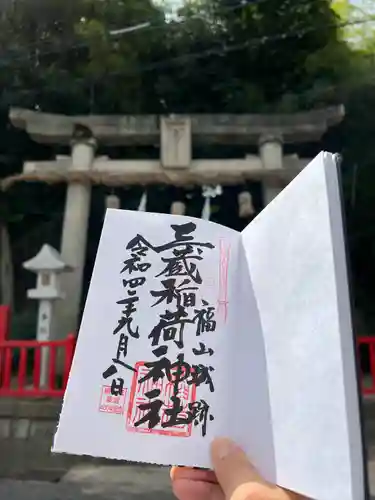 福山城跡
三蔵稲荷神社
令和四年九月八日